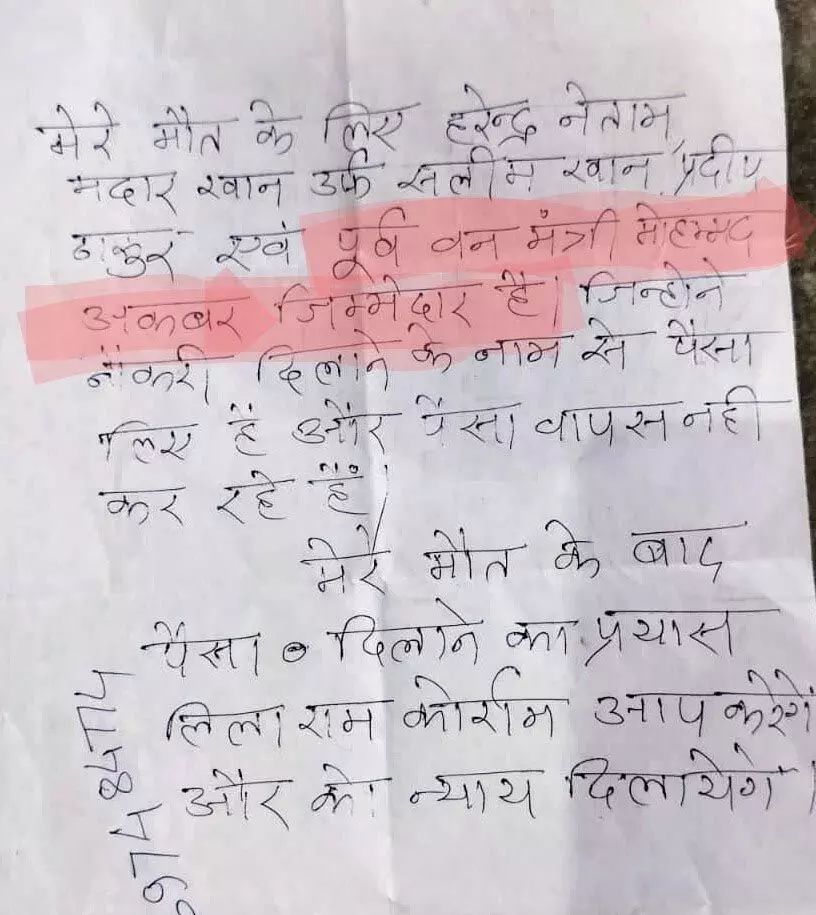 मेरे मौत के लिए हरेन्द्र नेताम,
मदार खान उर्फ सलीम खान, प्रदीप
ठाकुर एवं पूर्व वन मंत्री मोहम्मद
अकबर जिम्मेदार है। जिन्होने
नौकरी दिलाने के नाम से पैसा
लिए हैं और पैसा वापस नही
कर रहे हैं।
मेरे मौत के बाद
पैसा दिलाने का प्रयास
लिलाराम कोर्राम आप करेगें
और को न्याय दिलायेगें।